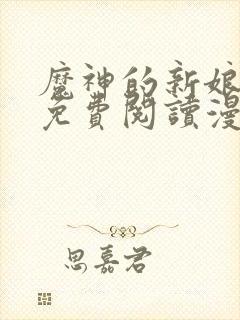 魔神的新娘
免費閱讀漫
思嘉君